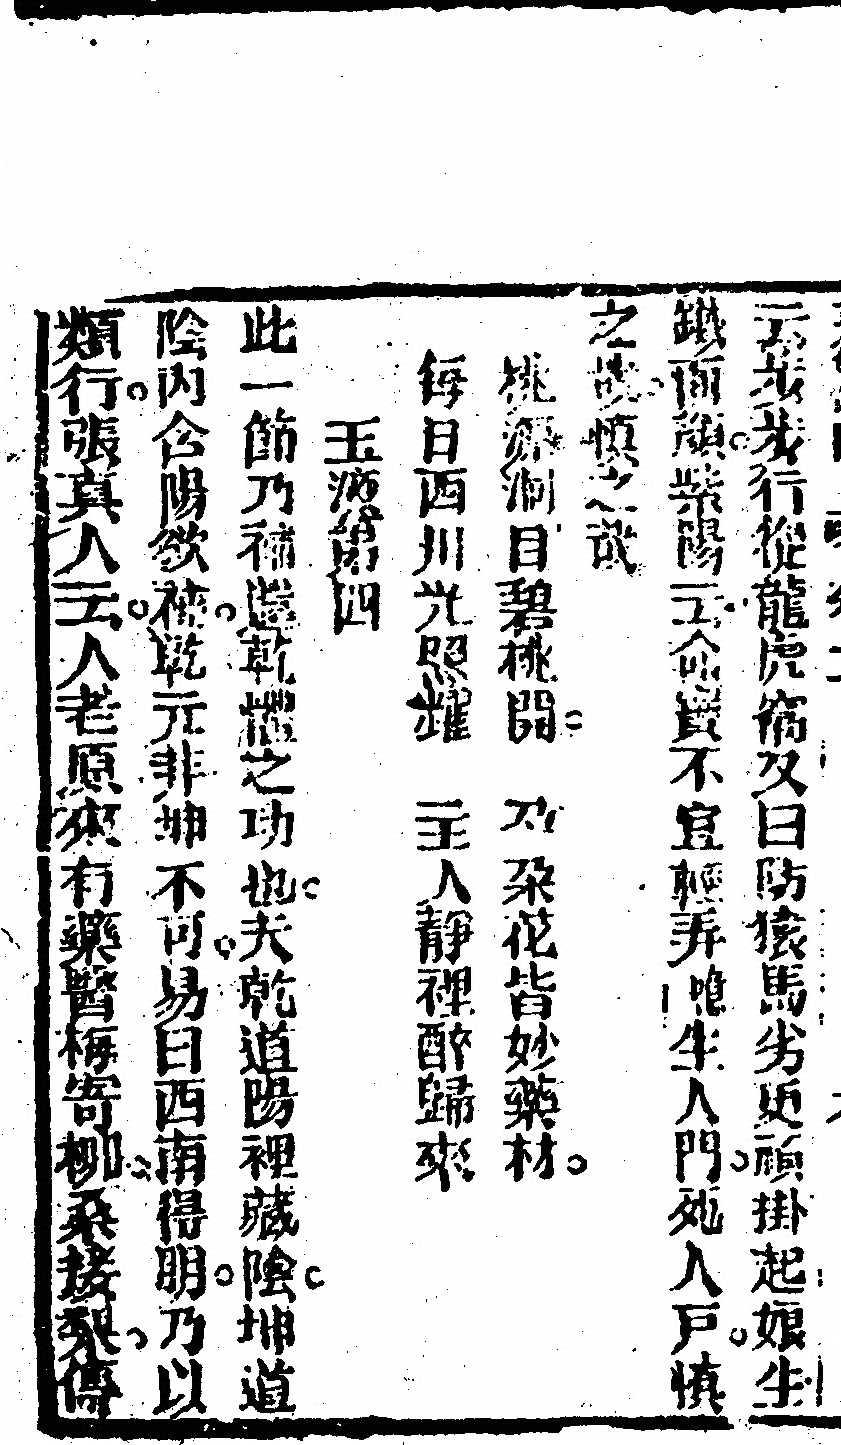 云步步行從龍虎窩又曰防猿馬劣更頑掛起娘生
鐵面顏紫陽云命寶不宜輕弄唯生人門死人戶慎
之哉慎之哉
桃源洞目碧桃開 朶花皆妙藥材
每日西川光照耀 主人靜裡醉歸來
玉 第四
此一節乃補 乾 之功也夫乾道陽裡藏陰坤道
陰內含陽欲補乾元非坤不可易曰西南得朋乃以
類行張真人云人老原來有藥醫梅寄柳桑接梨傳